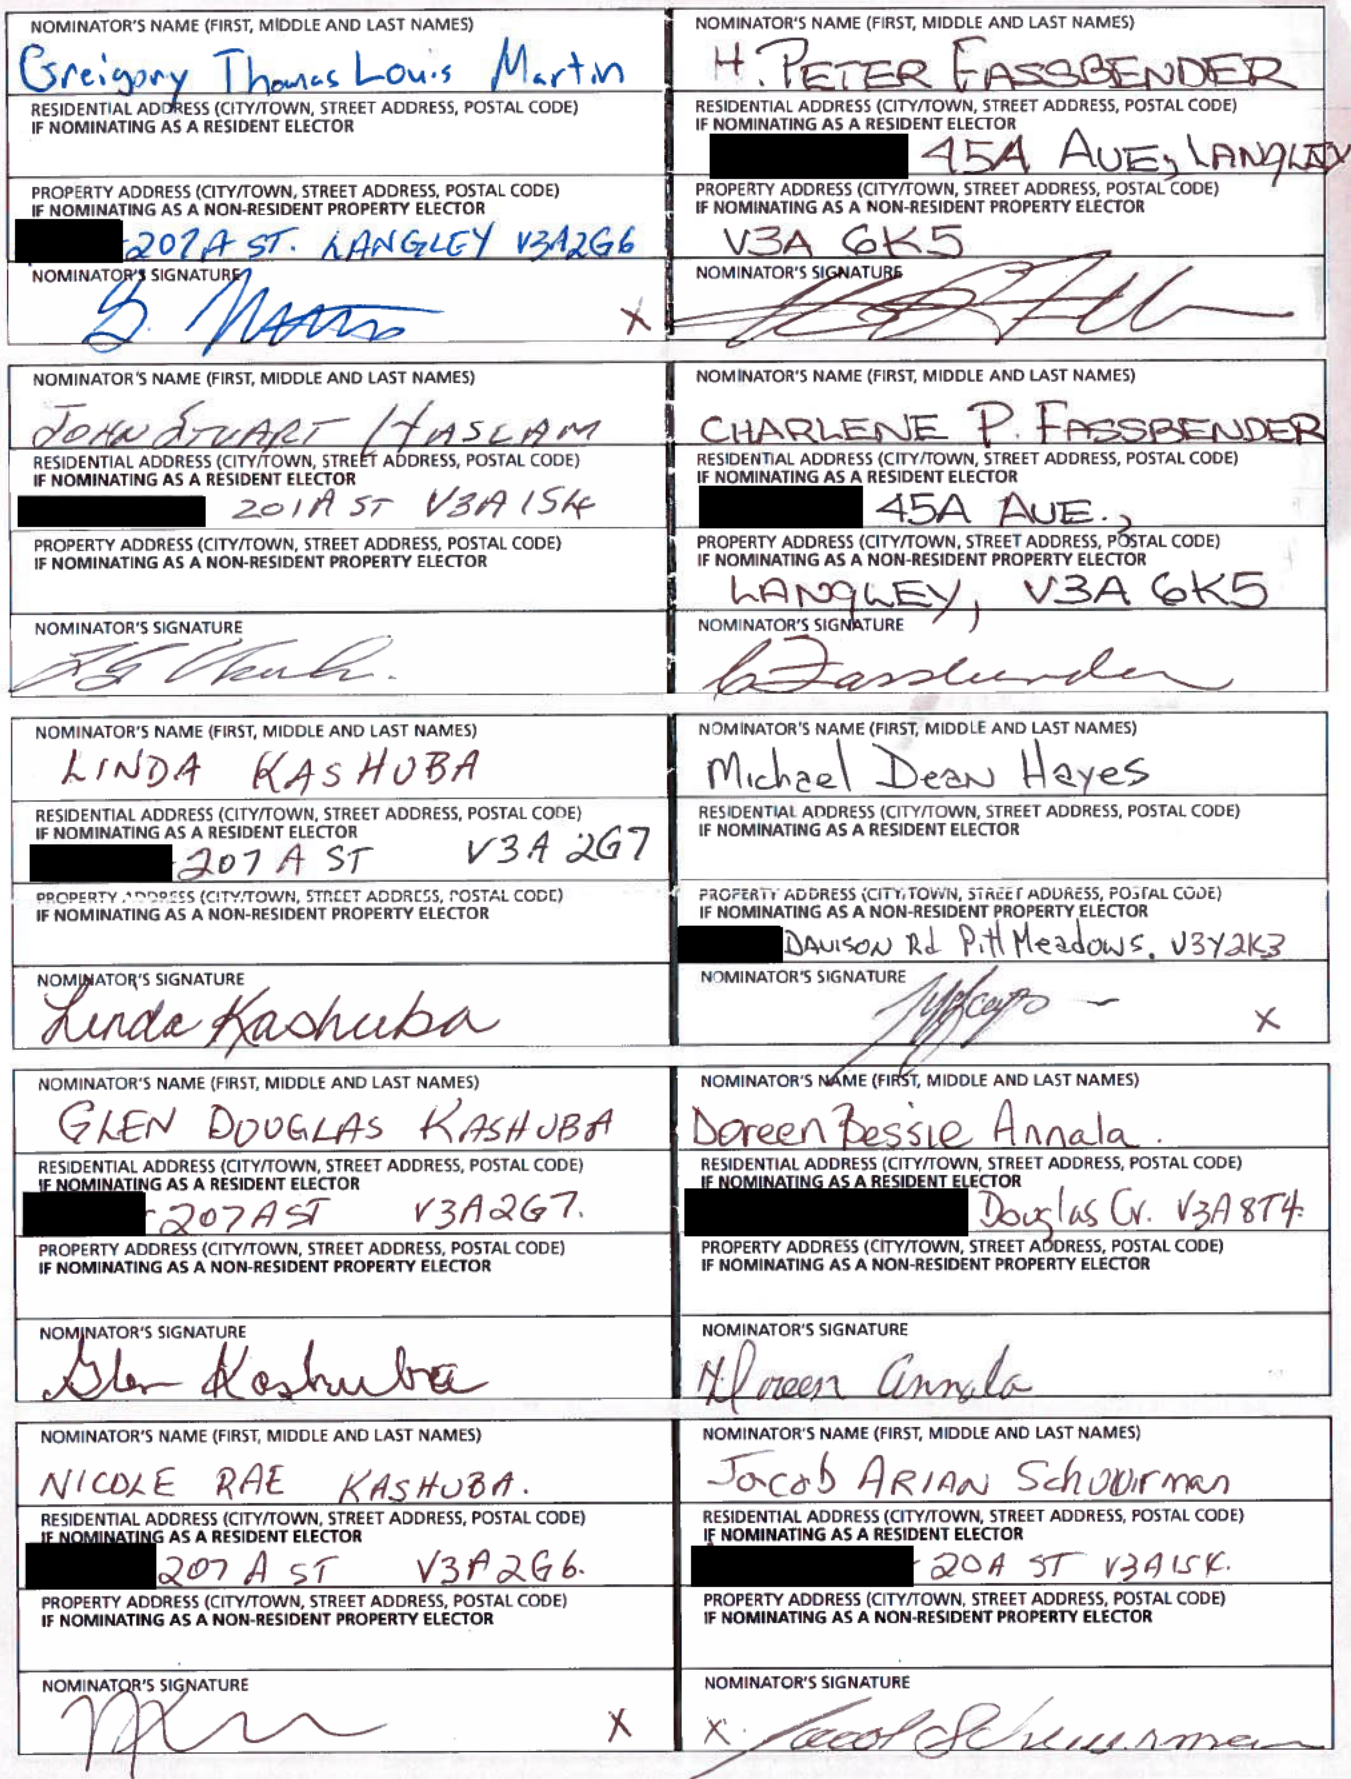 NOMINATOR'S NAME (FIRST, MIDDLE AND LAST NAMES)
Greigory Thomas Louis Martin
RESIDENTIAL ADDRESS (CITY/TOWN, STREET ADDRESS, POSTAL CODE)
IF NOMINATING AS A RESIDENT ELECTOR
PROPERTY ADDRESS (CITY/TOWN, STREET ADDRESS, POSTAL CODE)
IF NOMINATING AS A NON-RESIDENT PROPERTY ELECTOR
-207A ST. LANGLEY V3A2G6
NOMINATOR'S SIGNATURE
G. Martin X
NOMINATOR'S NAME (FIRST, MIDDLE AND LAST NAMES)
H. PETER FASSBENDER
RESIDENTIAL ADDRESS (CITY/TOWN, STREET ADDRESS, POSTAL CODE)
IF NOMINATING AS A RESIDENT ELECTOR
45A AUE, LANGLEY
PROPERTY ADDRESS (CITY/TOWN, STREET ADDRESS, POSTAL CODE)
IF NOMINATING AS A NON-RESIDENT PROPERTY ELECTOR
V3A 6K5
NOMINATOR'S SIGNATURE
NOMINATOR'S NAME (FIRST, MIDDLE AND LAST NAMES)
JOHN STUART HASLAM
RESIDENTIAL ADDRESS (CITY/TOWN, STREET ADDRESS, POSTAL CODE)
IF NOMINATING AS A RESIDENT ELECTOR
201A ST V3A 1S4
PROPERTY ADDRESS (CITY/TOWN, STREET ADDRESS, POSTAL CODE)
IF NOMINATING AS A NON-RESIDENT PROPERTY ELECTOR
NOMINATOR'S SIGNATURE
NOMINATOR'S NAME (FIRST, MIDDLE AND LAST NAMES)
CHARLENE P. FASSBENDER
RESIDENTIAL ADDRESS (CITY/TOWN, STREET ADDRESS, POSTAL CODE)
IF NOMINATING AS A RESIDENT ELECTOR
45A AUE.,
PROPERTY ADDRESS (CITY/TOWN, STREET ADDRESS, POSTAL CODE)
IF NOMINATING AS A NON-RESIDENT PROPERTY ELECTOR
LANGLEY, V3A 6K5
NOMINATOR'S SIGNATURE
C Fassbender
NOMINATOR'S NAME (FIRST, MIDDLE AND LAST NAMES)
LINDA KASHUBA
RESIDENTIAL ADDRESS (CITY/TOWN, STREET ADDRESS, POSTAL CODE)
IF NOMINATING AS A RESIDENT ELECTOR
-207 A ST V3A 2G7
PROPERTY ADDRESS (CITY/TOWN, STREET ADDRESS, POSTAL CODE)
IF NOMINATING AS A NON-RESIDENT PROPERTY ELECTOR
NOMINATOR'S SIGNATURE
Linda Kashuba
NOMINATOR'S NAME (FIRST, MIDDLE AND LAST NAMES)
Michael Dean Hayes
RESIDENTIAL ADDRESS (CITY/TOWN, STREET ADDRESS, POSTAL CODE)
IF NOMINATING AS A RESIDENT ELECTOR
PROPERTY ADDRESS (CITY/TOWN, STREET ADDRESS, POSTAL CODE)
IF NOMINATING AS A NON-RESIDENT PROPERTY ELECTOR
DAVISON Rd Pitt Meadows. V3Y2K3
NOMINATOR'S SIGNATURE
X
NOMINATOR'S NAME (FIRST, MIDDLE AND LAST NAMES)
GLEN DOUGLAS KASHUBA
RESIDENTIAL ADDRESS (CITY/TOWN, STREET ADDRESS, POSTAL CODE)
IF NOMINATING AS A RESIDENT ELECTOR
-207A ST V3A2G7.
PROPERTY ADDRESS (CITY/TOWN, STREET ADDRESS, POSTAL CODE)
IF NOMINATING AS A NON-RESIDENT PROPERTY ELECTOR
NOMINATOR'S SIGNATURE
Glen Kashuba
NOMINATOR'S NAME (FIRST, MIDDLE AND LAST NAMES)
Doreen Bessie Annala.
RESIDENTIAL ADDRESS (CITY/TOWN, STREET ADDRESS, POSTAL CODE)
IF NOMINATING AS A RESIDENT ELECTOR
Douglas Cr. V3A 8T4.
PROPERTY ADDRESS (CITY/TOWN, STREET ADDRESS, POSTAL CODE)
IF NOMINATING AS A NON-RESIDENT PROPERTY ELECTOR
NOMINATOR'S SIGNATURE
Doreen Annala
NOMINATOR'S NAME (FIRST, MIDDLE AND LAST NAMES)
NICOLE RAE KASHUBA.
RESIDENTIAL ADDRESS (CITY/TOWN, STREET ADDRESS, POSTAL CODE)
IF NOMINATING AS A RESIDENT ELECTOR
207 A ST V3A2G6.
PROPERTY ADDRESS (CITY/TOWN, STREET ADDRESS, POSTAL CODE)
IF NOMINATING AS A NON-RESIDENT PROPERTY ELECTOR
NOMINATOR'S SIGNATURE
X
NOMINATOR'S NAME (FIRST, MIDDLE AND LAST NAMES)
Jacob ARIAN Schuurman
RESIDENTIAL ADDRESS (CITY/TOWN, STREET ADDRESS, POSTAL CODE)
IF NOMINATING AS A RESIDENT ELECTOR
- 20A ST V3A
PROPERTY ADDRESS (CITY/TOWN, STREET ADDRESS, POSTAL CODE)
IF NOMINATING AS A NON-RESIDENT PROPERTY ELECTOR
NOMINATOR'S SIGNATURE
X Jacob Schuurman